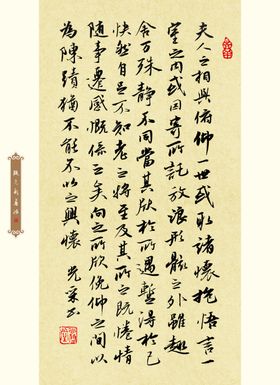 夫人之相與俯仰一世或取諸懷抱悟言一
室之內或因寄所託放浪形骸之外雖趣
舍万殊靜不同當其欣於所遇蹔得於己
快然自足不知老之將至及其所之既惓情
隨事遷感慨係之矣向之所欣俛仰之間以
為陳蹟猶不能不以之興懷